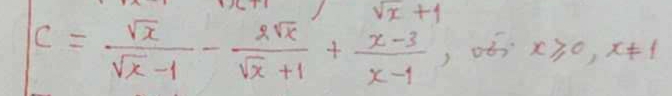 √x + 1
C = √x / (√x - 1) - 2√x / (√x + 1) + (x - 3) / (x - 1), với x ≥ 0, x ≠ 1